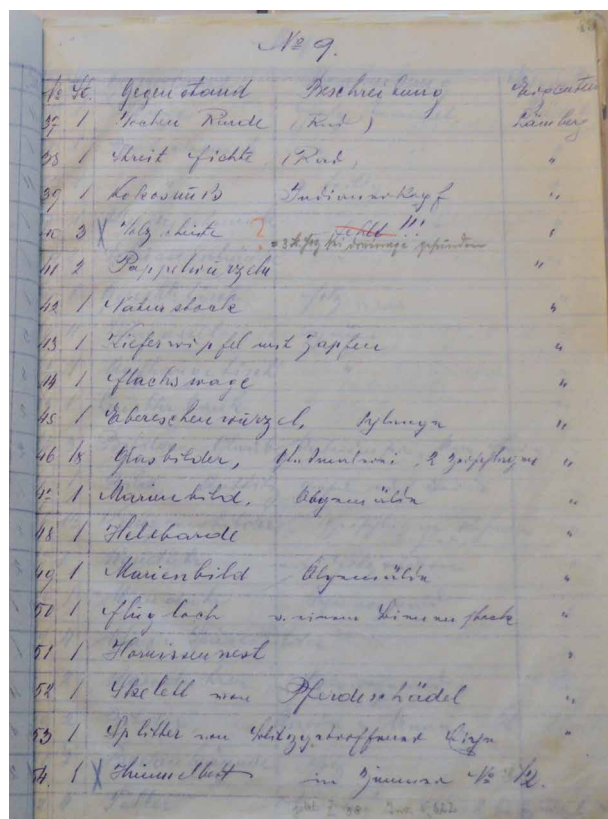 No 9.
No St. Gegenstand Beschreibung
37 1 Kochen Runde (Rund) Lämberg
38 1 Streit fichte (Rund) "
39 1 Kokosnuß Indianerkopf "
40 3 X Holz ? fehlt !!! "
= 3 St. gefunden
41 2 Pappelwurzeln "
42 1 Naturstock "
43 1 Kieferwipfel mit Zapfen "
44 1 flachswage "
45 1 Ebereschenwurzel, Schlange "
46 18 Glasbilder, "
47 1 Marienbild, Ölgemälde "
48 1 Helebarde "
49 1 Marienbild Ölgemälde "
50 1 flugloch v. einem Bienenstock "
51 1 Hornissennest "
52 1 Skelett von Pferdeschädel "
53 1 Splitter von blitzgetroffener "
54. 1 X Himmelbett im Zimmer No 12.